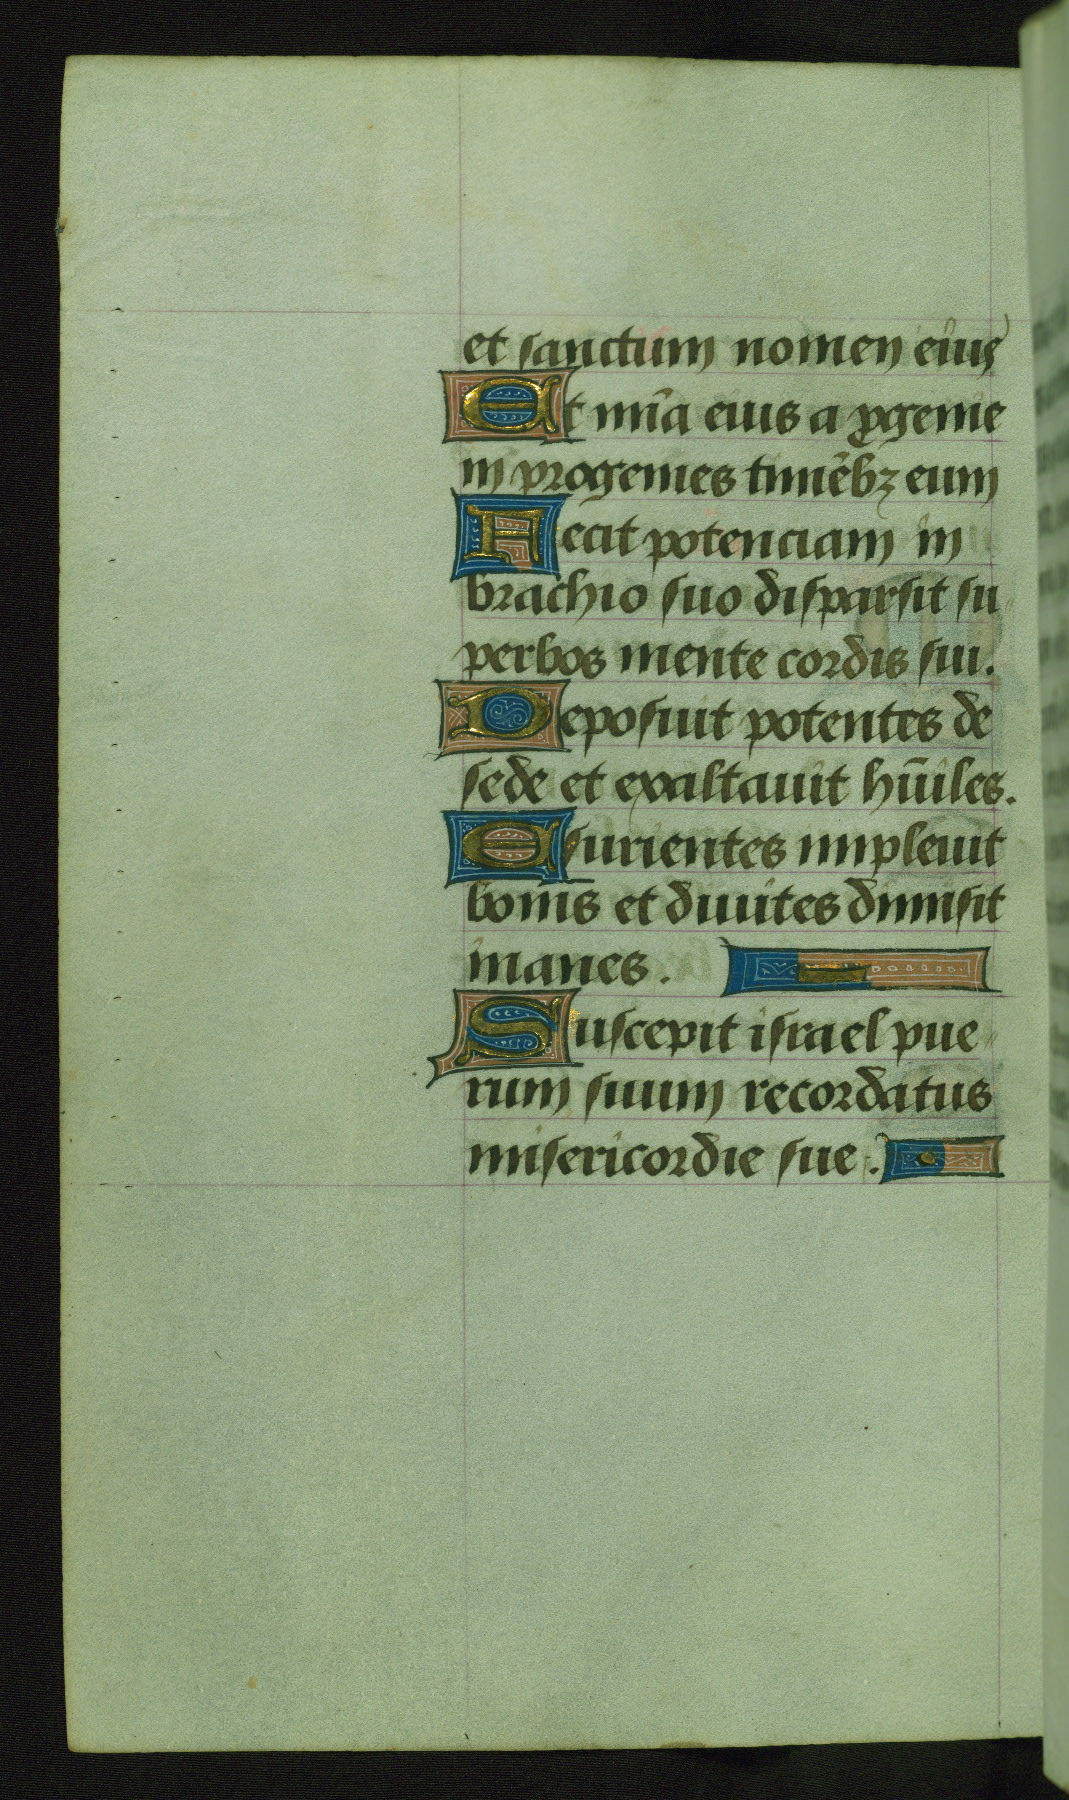 et sanctum nomen eius
Et mr̄ia eius a ꝓgenie
in progenies timētibꝫ eum
Fecit potenciam in
brachio suo disparsit su
perbos mente cordis sui.
Deposuit potentes de
sede et exaltauit hūiles.
Esurientes impleuit
bonis et diuites dimisit
inanes.
Suscepit israel pue
rum suum recordatus
misericordie sue.